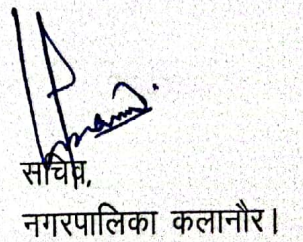 सचिव,
नगरपालिका कलानौर।